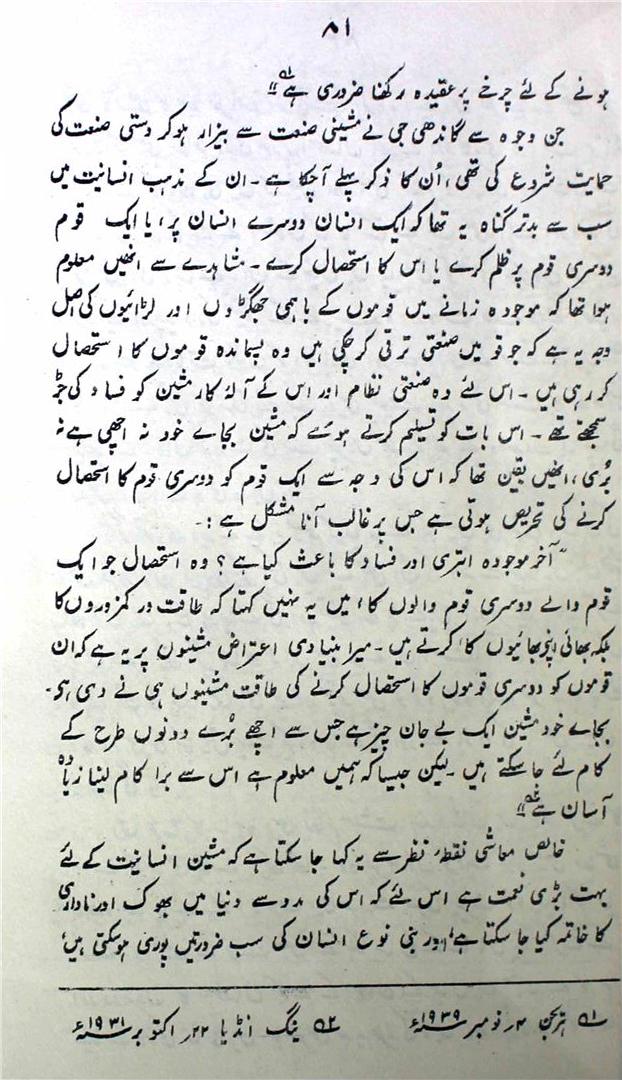 ۸۱
ہونے کے لئے چرخے پر عقیدہ رکھنا ضروری ہے ۵۱؎"
جن وجوہ سے گاندھی جی نے مشینی صنعت سے بیزار ہوکر دستی صنعت کی
حمایت شروع کی تھی، اُن کا ذکر پہلے آچکا ہے۔ ان کے مذہب انسانیت میں
سب سے بدتر گناہ یہ تھا کہ ایک انسان دوسرے انسان پر، یا ایک قوم
دوسری قوم پر ظلم کرے یا اس کا استحصال کرے۔ مشاہدے سے انھیں معلوم
ہوا تھا کہ موجودہ زمانے میں قوموں کے باہمی جھگڑوں اور لڑائیوں کی اصل
وجہ یہ ہے کہ جو قومیں صنعتی ترقی کرچکی ہیں وہ پسماندہ قوموں کا استحصال
کررہی ہیں۔ اس لئے وہ صنعتی نظام اور اس کے آلۂ کار مشین کو فساد کی جڑ
سمجھتے تھے۔ اس بات کو تسلیم کرتے ہوئے کہ مشین بجاے خود نہ اچھی ہے نہ
بُری، انھیں یقین تھا کہ اس کی وجہ سے ایک قوم کو دوسری قوم کا استحصال
کرنے کی تحریص ہوتی ہے جس پر غالب آنا مشکل ہے :۔
"آخر موجودہ ابتری اور فساد کا باعث کیا ہے؟ وہ استحصال جو ایک
قوم والے دوسری قوم والوں کا، میں یہ نہیں کہتا کہ طاقت ور کمزوروں کا
بلکہ بھائی اپنے بھائیوں کا کرتے ہیں۔ میرا بنیادی اعتراض مشینوں پر یہ ہے کہ ان
قوموں کو دوسری قوموں کا استحصال کرنے کی طاقت مشینوں ہی نے دی ہی۔
بجاے خود مشین ایک بے جان چیز ہے جس سے اچھے بُرے دونوں طرح کے
کام لئے جاسکتے ہیں۔ لیکن جیسا کہ ہمیں معلوم ہے اس سے برا کام لینا زیادہ
آسان ہے ۵۲؎"
خالص معاشی نقطۂ نظر سے یہ کہا جاسکتا ہے کہ مشین انسانیت کے لئے
بہت بڑی نعمت ہے اس لئے کہ اس کی مدد سے دنیا میں بھوک اور ناداری
کا خاتمہ کیا جاسکتا ہے، اور بنی نوع انسان کی سب ضرورتیں پوری ہوسکتی ہیں،
۵۱ ہریجن ۴ر نومبر ۱۹۳۹ء ۵۲ ینگ انڈیا ۲۲ر اکتوبر ۱۹۳۱ء